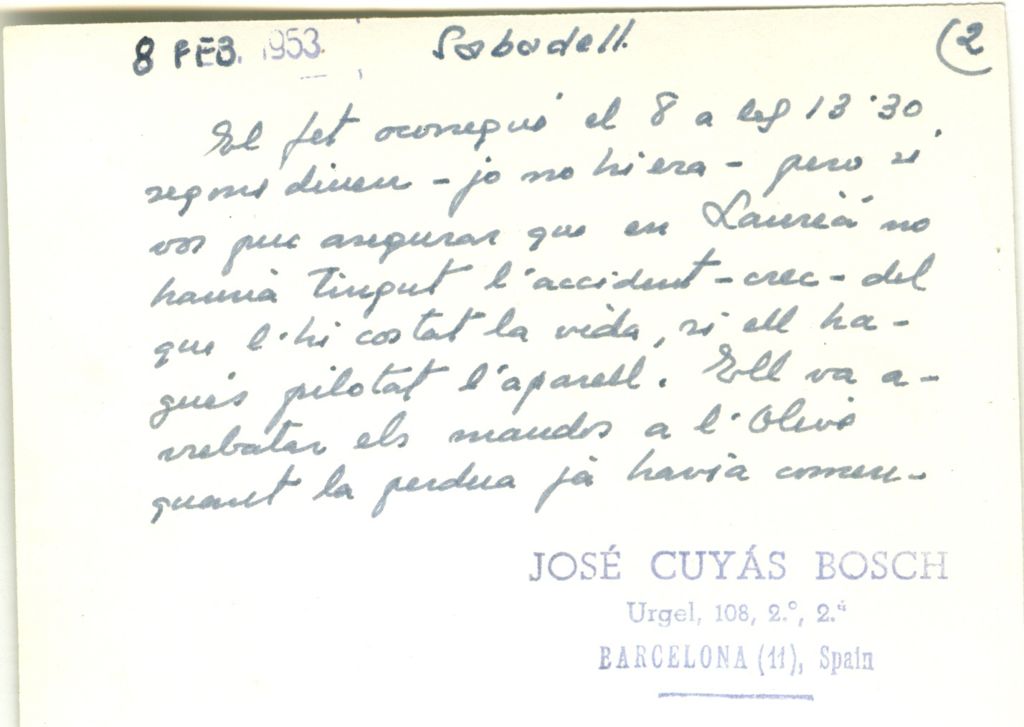 8 FEB. 1953. Sabadell. (2
El fet ocorregué el 8 a les 13'30,
segons diuen - jo no hi era - pero si
vos puc asegurar que en Laurià no
hauria tingut l'accident - crec - del
que l'hi costat la vida, si ell ha-
gués pilotat l'aparell. Ell va a-
rrebatar els mandos a l'Olivé
quant la perdua jà havia comen-
JOSÉ CUYÁS BOSCH
Urgel, 108, 2.º, 2.ª
BARCELONA (11), Spain